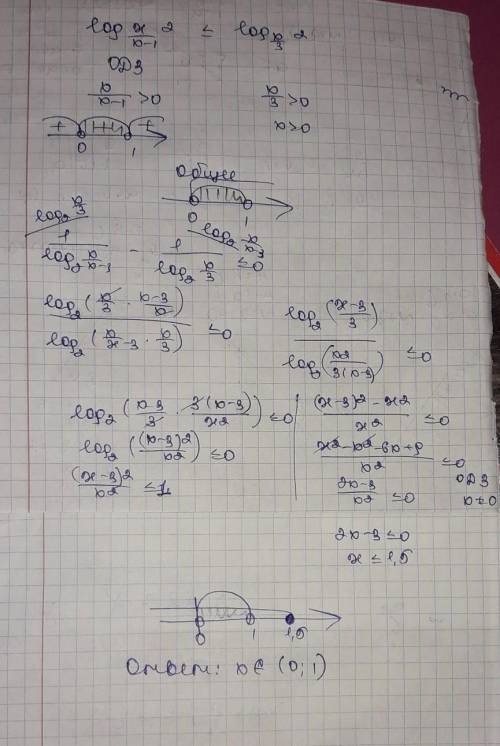 log x/x-1 2 ≤ log x/3 2
ОДЗ
x/x-1 >0    x/3 >0
x>0
+ +
0 1
Общее
0 1
log2 x/3    log2 x/x-3
1/log2 x/x-3 - 1/log2 x/3 ≤0
log2 (x/3 · x-3/x) / log2 (x/x-3 · x/3) ≤0
log2 (x-3/3) / log2 (x2/3(x-3)) ≤0
log2 (x-3/3 · 3(x-3)/x2) ≤0
log2 ((x-3)2/x2) ≤0
(x-3)2/x2 ≤1
(x-3)2-x2/x2 ≤0
x2-x2-6x+9/x2 ≤0
ОДЗ
2x-3/x2 ≤0    x≠0
2x-3≤0
x≤1,5
0 1 1,5
Ответ: x∈ (0;1)